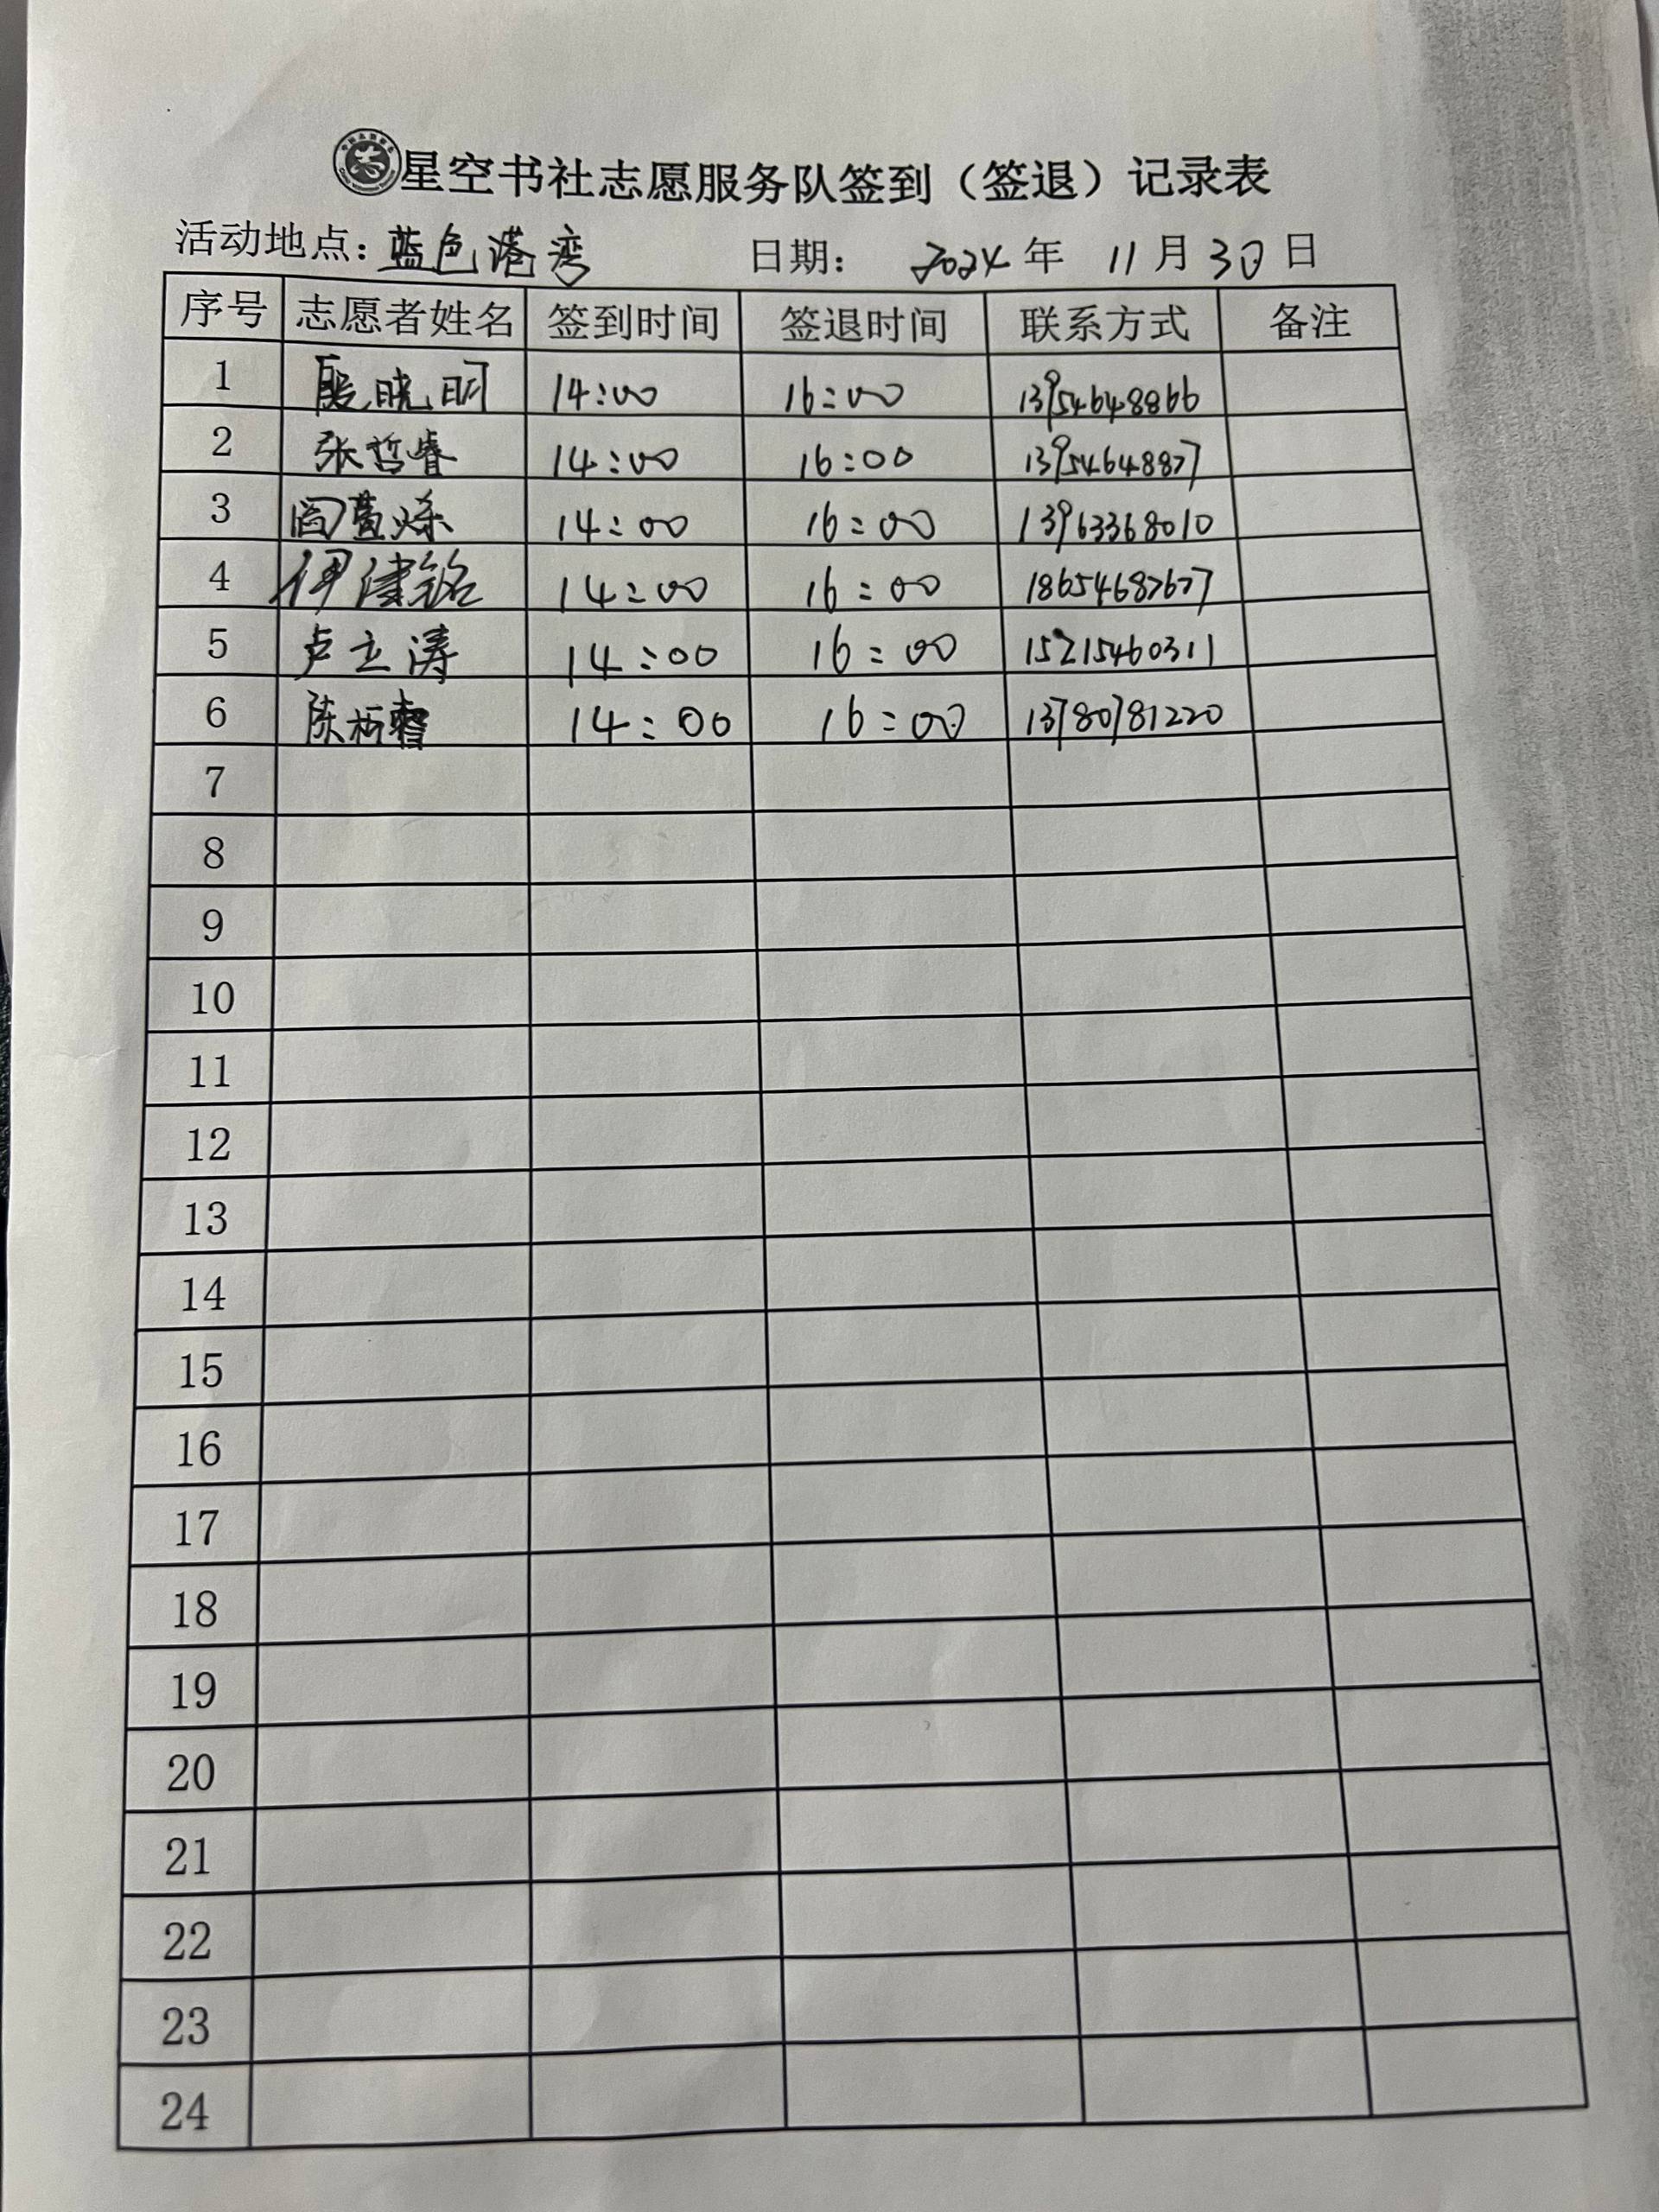 星空书社志愿服务队签到（签退）记录表
活动地点：蓝色港湾 日期： 2024年 11月30日
序号 志愿者姓名 签到时间 签退时间 联系方式 备注
1 殷晓明 14:00 16:00 13954648866
2 张哲睿 14:00 16:00 13954648877
3 14:00 16:00 13963368010
4 14:00 16:00 18654687677
5 卢立涛 14:00 16:00 15215460311
6 陈柄睿 14:00 16:00 13780781220
7
8
9
10
11
12
13
14
15
16
17
18
19
20
21
22
23
24